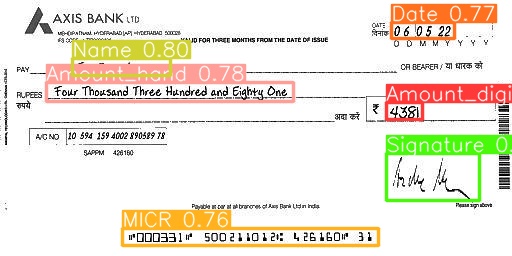 AXIS BANK LTD
MEHDIPATNAM, HYDERABAD[AP] HYDERABAD 500028
DATE दिनांक 06 05 22
D D M M Y Y
VALID FOR THREE MONTHS FROM THE DATE OF ISSUE
Date 0.77
Name 0.80
PAY
OR BEARER / या धारक को
Amount_hand 0.78
RUPEES रुपये Four Thousand Three Hundred and Eighty One
Amount_digi
अदा करें ₹ 4381
A/C NO 10 594 159 4002 890589 78
SAPPM 426160
Signature 0.
Payable at par at all branches of Axis Bank Ltd in India.
Please sign above
MICR 0.76
⑈000331⑈ 500211012⑆ 426160⑈ 31